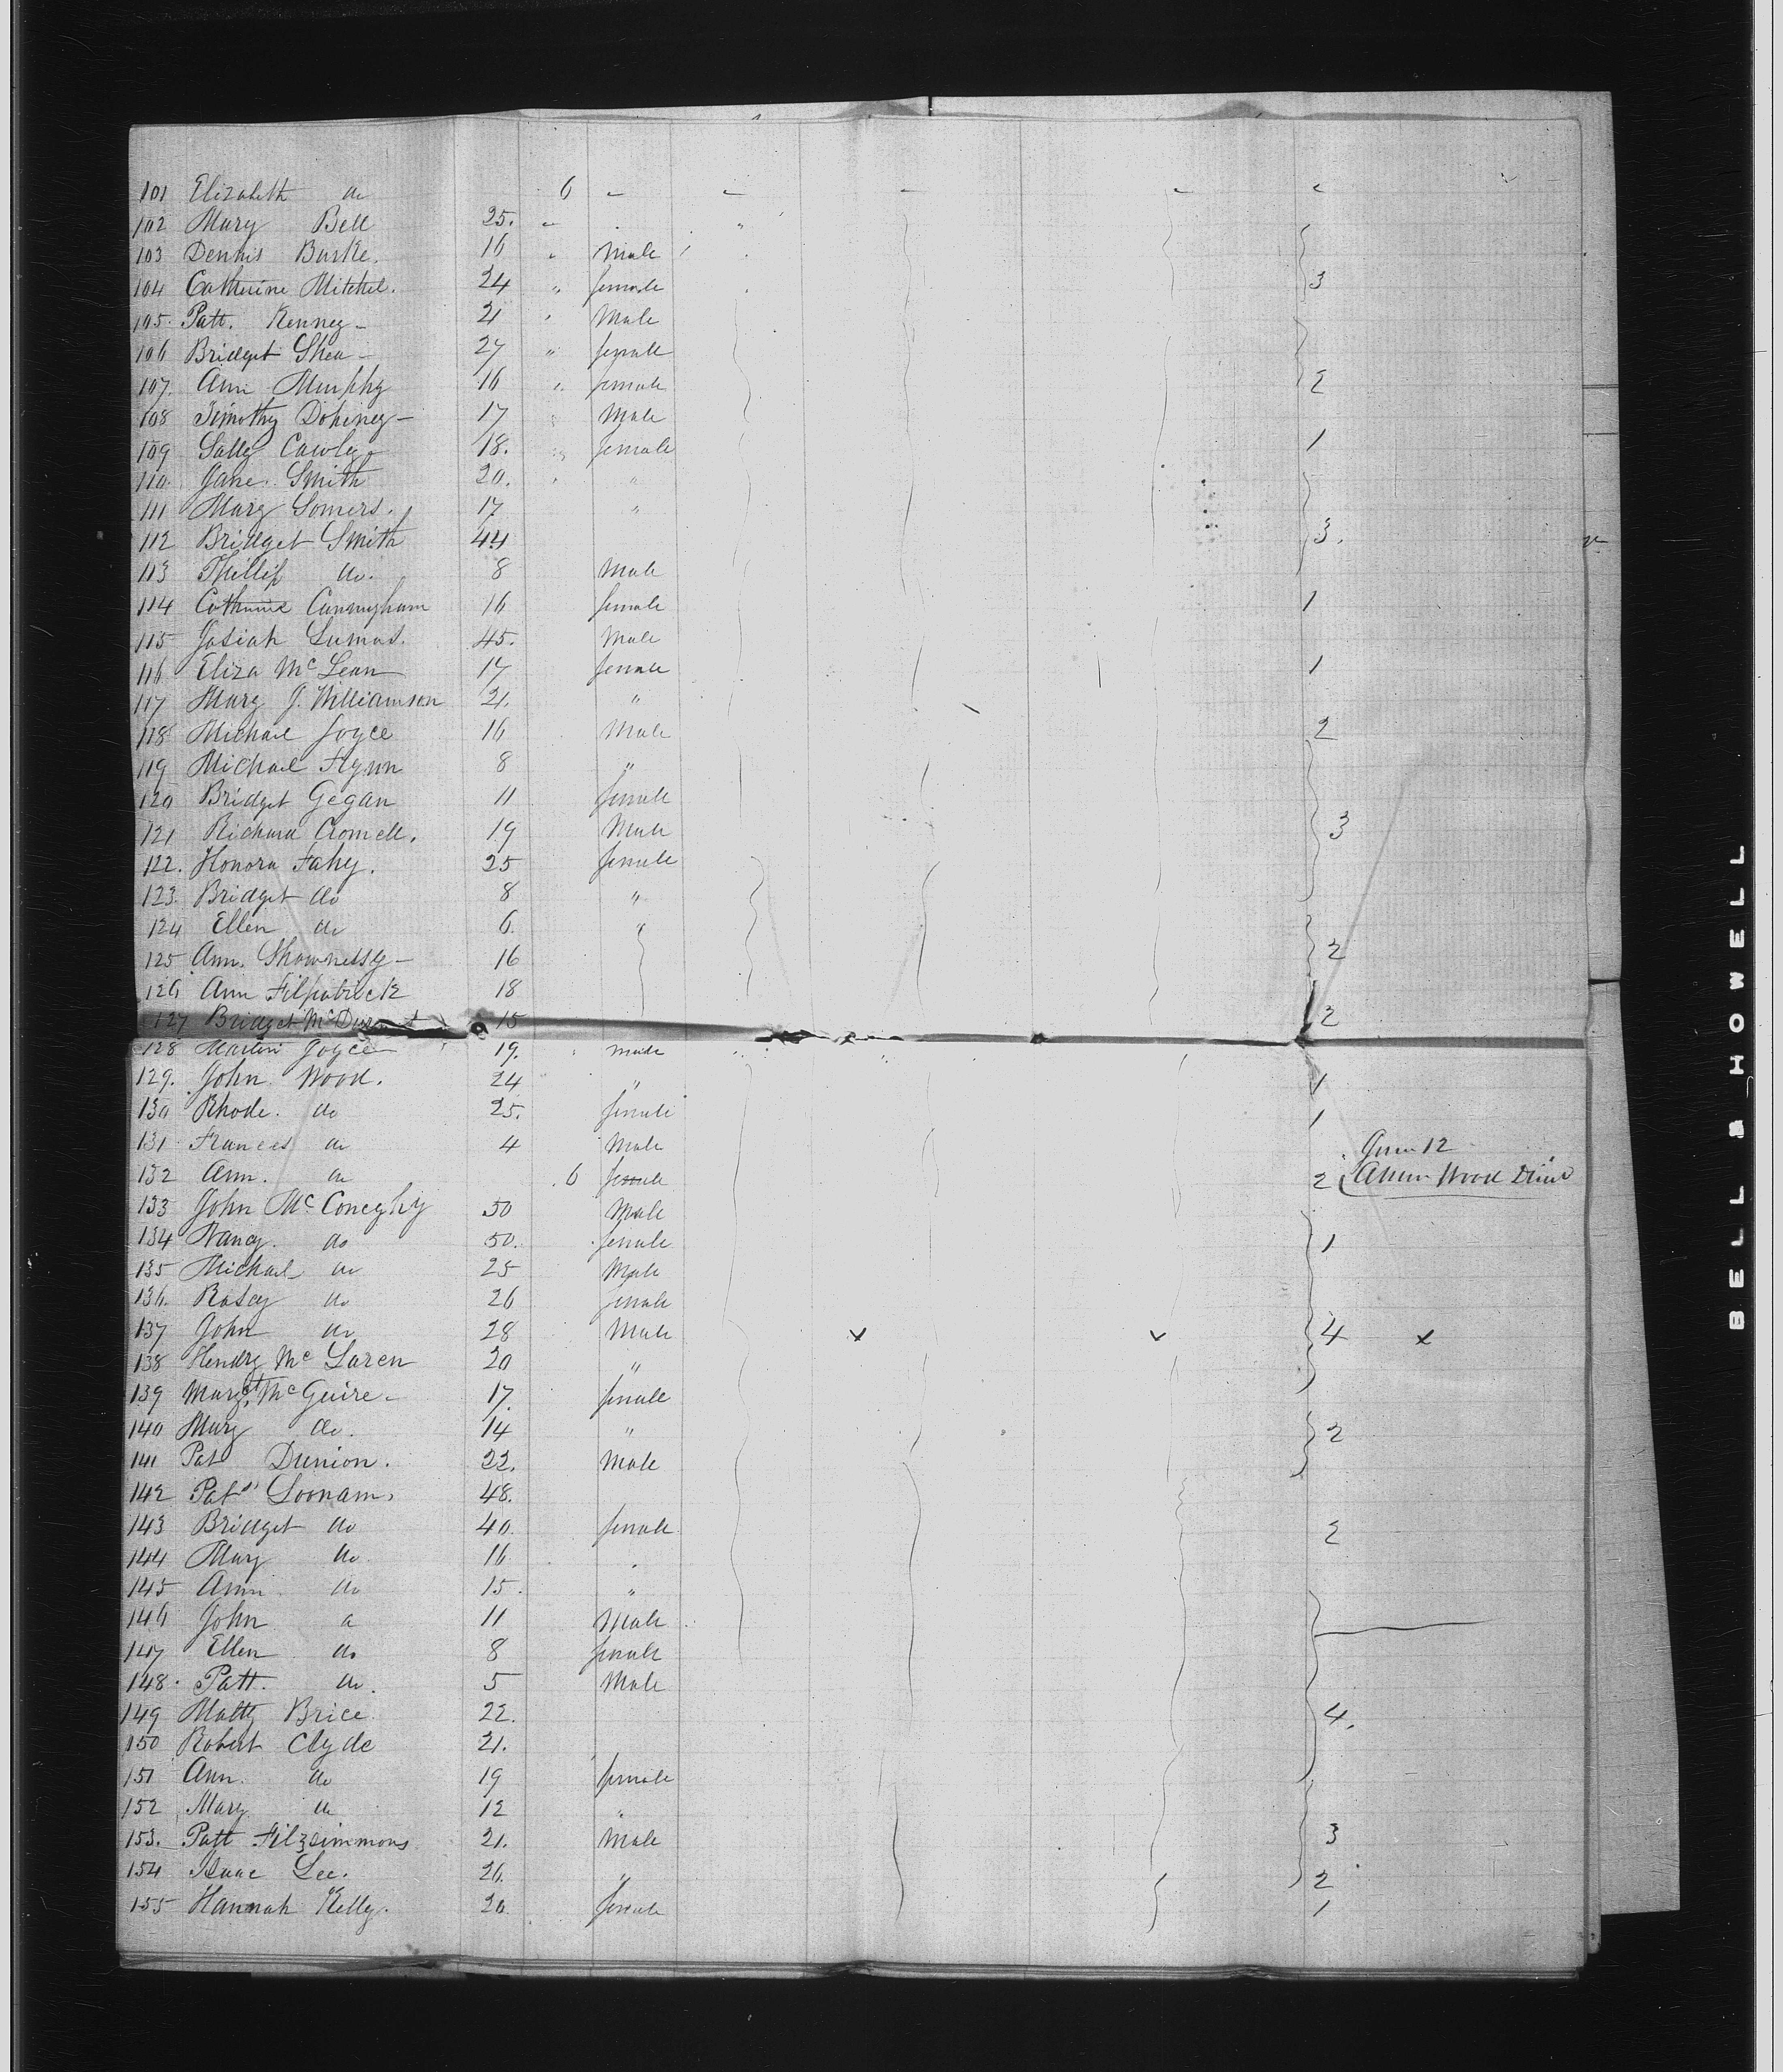 101 Elizabeth do 6 - - - - -
102 Mary Bell 25. "
103 Dennis Burke. 16 " Male
104 Catherine Mitchel. 24 " female 3
105. Patt. Kenney - 21 " Male
106 Bridget Shea - 27 " female
107. Ann Murphy 16 " female 2
108 Timothy Dohiney - 17 " Male
109 Sally Cawley 18. " female 1
110 Jane Smith 20. " "
111 Mary Somers. 17 "
112 Bridget Smith 44 3.
113 Phillip do. 8 Male
114 Catherine Cunningham 16 female 1
115 Josiah Lumas. 45. Male
116 Eliza McLean 17 female 1
117 Mary J. Williamson 21. "
118 Michael Joyce 16 Male 2
119 Michael Flynn 8 "
120 Bridget Gegan 11 female
121 Richard Cromell. 19 Male 3
122. Honora Fahy. 25 female
123. Bridget do 8 "
124 Ellen do 6. "
125 Ann. Shownessy - 16 2
126 Ann Filpatrick 18
127 Bridget 15 2
128 Martin Joyce 19. Male
129. John Wood. 24 " 1
130 Rhode. do 25. female 1
131 Frances do 4 Male June 12
132 Ann. do 6 female 2 Wood
133 John McConeghy 50 Male
134 Nancy. do 50. female 1
135 Michael do 25 Male
136. Rosey do 26 female
137 John do 28 Male x x 4 x
138 Henry McLaren 20 "
139 Margt. McGuire - 17. female
140 Mary do. 14 " 2
141 Pat Dunion. 22. Male
142 Pat Loonam. 48.
143 Bridget do 40. female 2
144 Mary do. 16 "
145 Ann. do 15. "
146 John do 11 Male
147 Ellen do 8 female
148. Patt. do. 5 Male
149 Matty Brice 22. 4.
150 Robert Clyde 21.
151 Ann. do 19 female
152 Mary do 12 "
153. Patt Filzsimmons 21. Male 3
154 Isaac Lee. 26. " 2
155 Hannah Kelly. 20. female 1
BELL & HOWELL